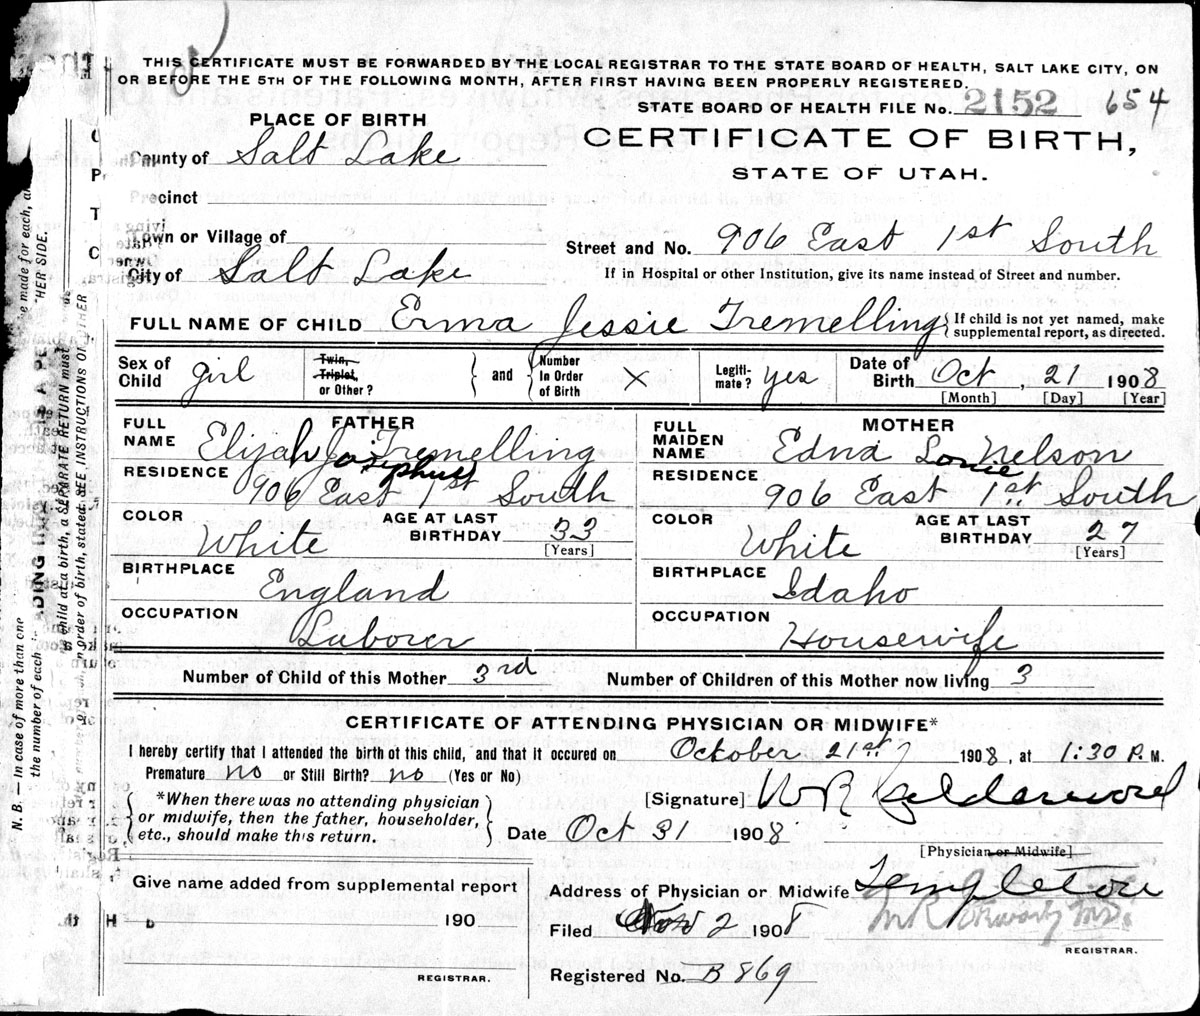 THIS CERTIFICATE MUST BE FORWARDED BY THE LOCAL REGISTRAR TO THE STATE BOARD OF HEALTH, SALT LAKE CITY, ON
OR BEFORE THE 5TH OF THE FOLLOWING MONTH, AFTER FIRST HAVING BEEN PROPERLY REGISTERED.
STATE BOARD OF HEALTH FILE No. 2152 654
PLACE OF BIRTH
CERTIFICATE OF BIRTH,
STATE OF UTAH.
County of Salt Lake
Precinct
Town or Village of
Street and No. 906 East 1st South
City of Salt Lake
If in Hospital or other Institution, give its name instead of Street and number.
FULL NAME OF CHILD Erma Jessie Tremelling { If child is not yet named, make supplemental report, as directed.
Sex of Child girl Twin, Triplet, or Other? } and { Number In Order of Birth X Legiti-mate? yes Date of Birth Oct, 21 1908
[Month] [Day] [Year]
FATHER
FULL NAME Elijah Josephus Tremelling
RESIDENCE 906 East 1st South
COLOR White AGE AT LAST BIRTHDAY 33 [Years]
BIRTHPLACE England
OCCUPATION Laborer
MOTHER
FULL MAIDEN NAME Edna Nelson
RESIDENCE 906 East 1st South
COLOR White AGE AT LAST BIRTHDAY 27 [Years]
BIRTHPLACE Idaho
OCCUPATION Housewife
Number of Child of this Mother 3rd Number of Children of this Mother now living 3
CERTIFICATE OF ATTENDING PHYSICIAN OR MIDWIFE*
I hereby certify that I attended the birth of this child, and that it occured on October 21st 1908, at 1:30 P. M.
Premature no or Still Birth? no (Yes or No)
{ *When there was no attending physician
or midwife, then the father, householder,
etc., should make this return. }
[Signature] W R Calderwood
Date Oct 31 1908
[Physician or Midwife]
Give name added from supplemental report
190
REGISTRAR.
Address of Physician or Midwife Templeton
Filed Nov 2 1908
REGISTRAR.
Registered No. B 869
N. B. — In case of more than one child at a birth, a SEPARATE RETURN must be made for each, and
the number of each in order of birth, stated. SEE INSTRUCTIONS ON OTHER SIDE.